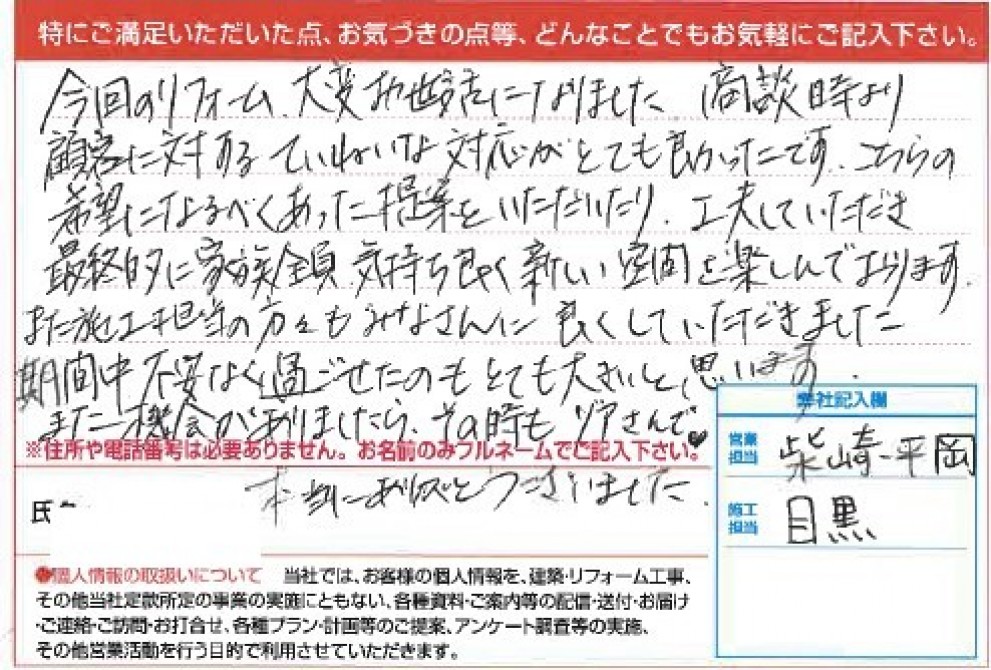 特にご満足いただいた点、お気づきの点等、どんなことでもお気軽にご記入下さい。
今回のリフォーム、大変お世話になりました。商談時より
顧客に対する ていねいな対応がとても良かったです。こちらの
希望になるべくあった提案をいただいたり、工夫していただき
最終的に家族全員気持ち良く新しい空間を楽しんでおります。
また施工担当の方々もみなさんに良くしていただきました
期間中不安なく過ごせたのもとても大きいと思います。
また機会がありましたら、その時も ゾアさんで♥
※住所や電話番号は必要ありません。お名前のみフルネームでご記入下さい。
本当にありがとうございました。
氏
弊社記入欄
営業担当 柴崎・平岡
施工担当 目黒
●個人情報の取扱いについて 当社では、お客様の個人情報を、建築・リフォーム工事、
その他当社定款所定の事業の実施にともない、各種資料・ご案内等の配信・送付・お届け
・ご連絡・ご訪問・お打合せ、各種プラン・計画等のご提案、アンケート調査等の実施、
その他営業活動を行う目的で利用させていただきます。